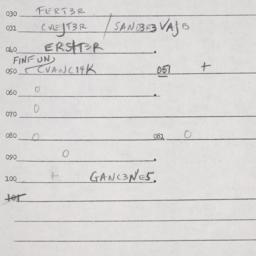 030 FERT3R
031 CVEJT3R / SANDBE3VAJB
040 ERSIT3R .
FINFUN)
050 CVANC14K 051 +
060 O .
070 O
080 O 081 O
090 O .
100 + GANC3NES.
101